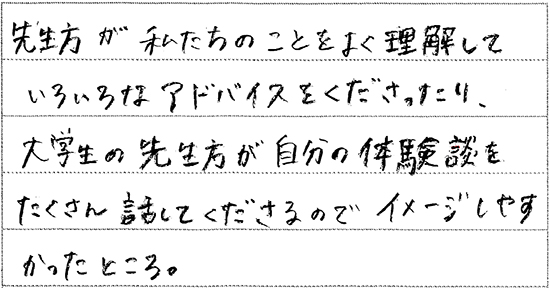 先生方が私たちのことをよく理解して
いろいろなアドバイスをくださったり、
大学生の先生方が自分の体験談を
たくさん話してくださるのでイメージしやす
かったところ。